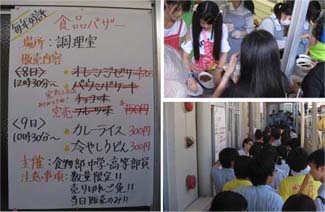 毎年好評
食品バザー
場所：調理室
販売内容
<8日>
12時30分～
オレンジゼリー
パウンドケーキ
チョコ味
フルーツ味
完売
<9日>
10時30分～
カレーライス 300円
冷やしうどん 300円
主催：食物部 中学・高等部員
注意事項：数量限定!!
売り切れご免!!
当日販売のみ!!